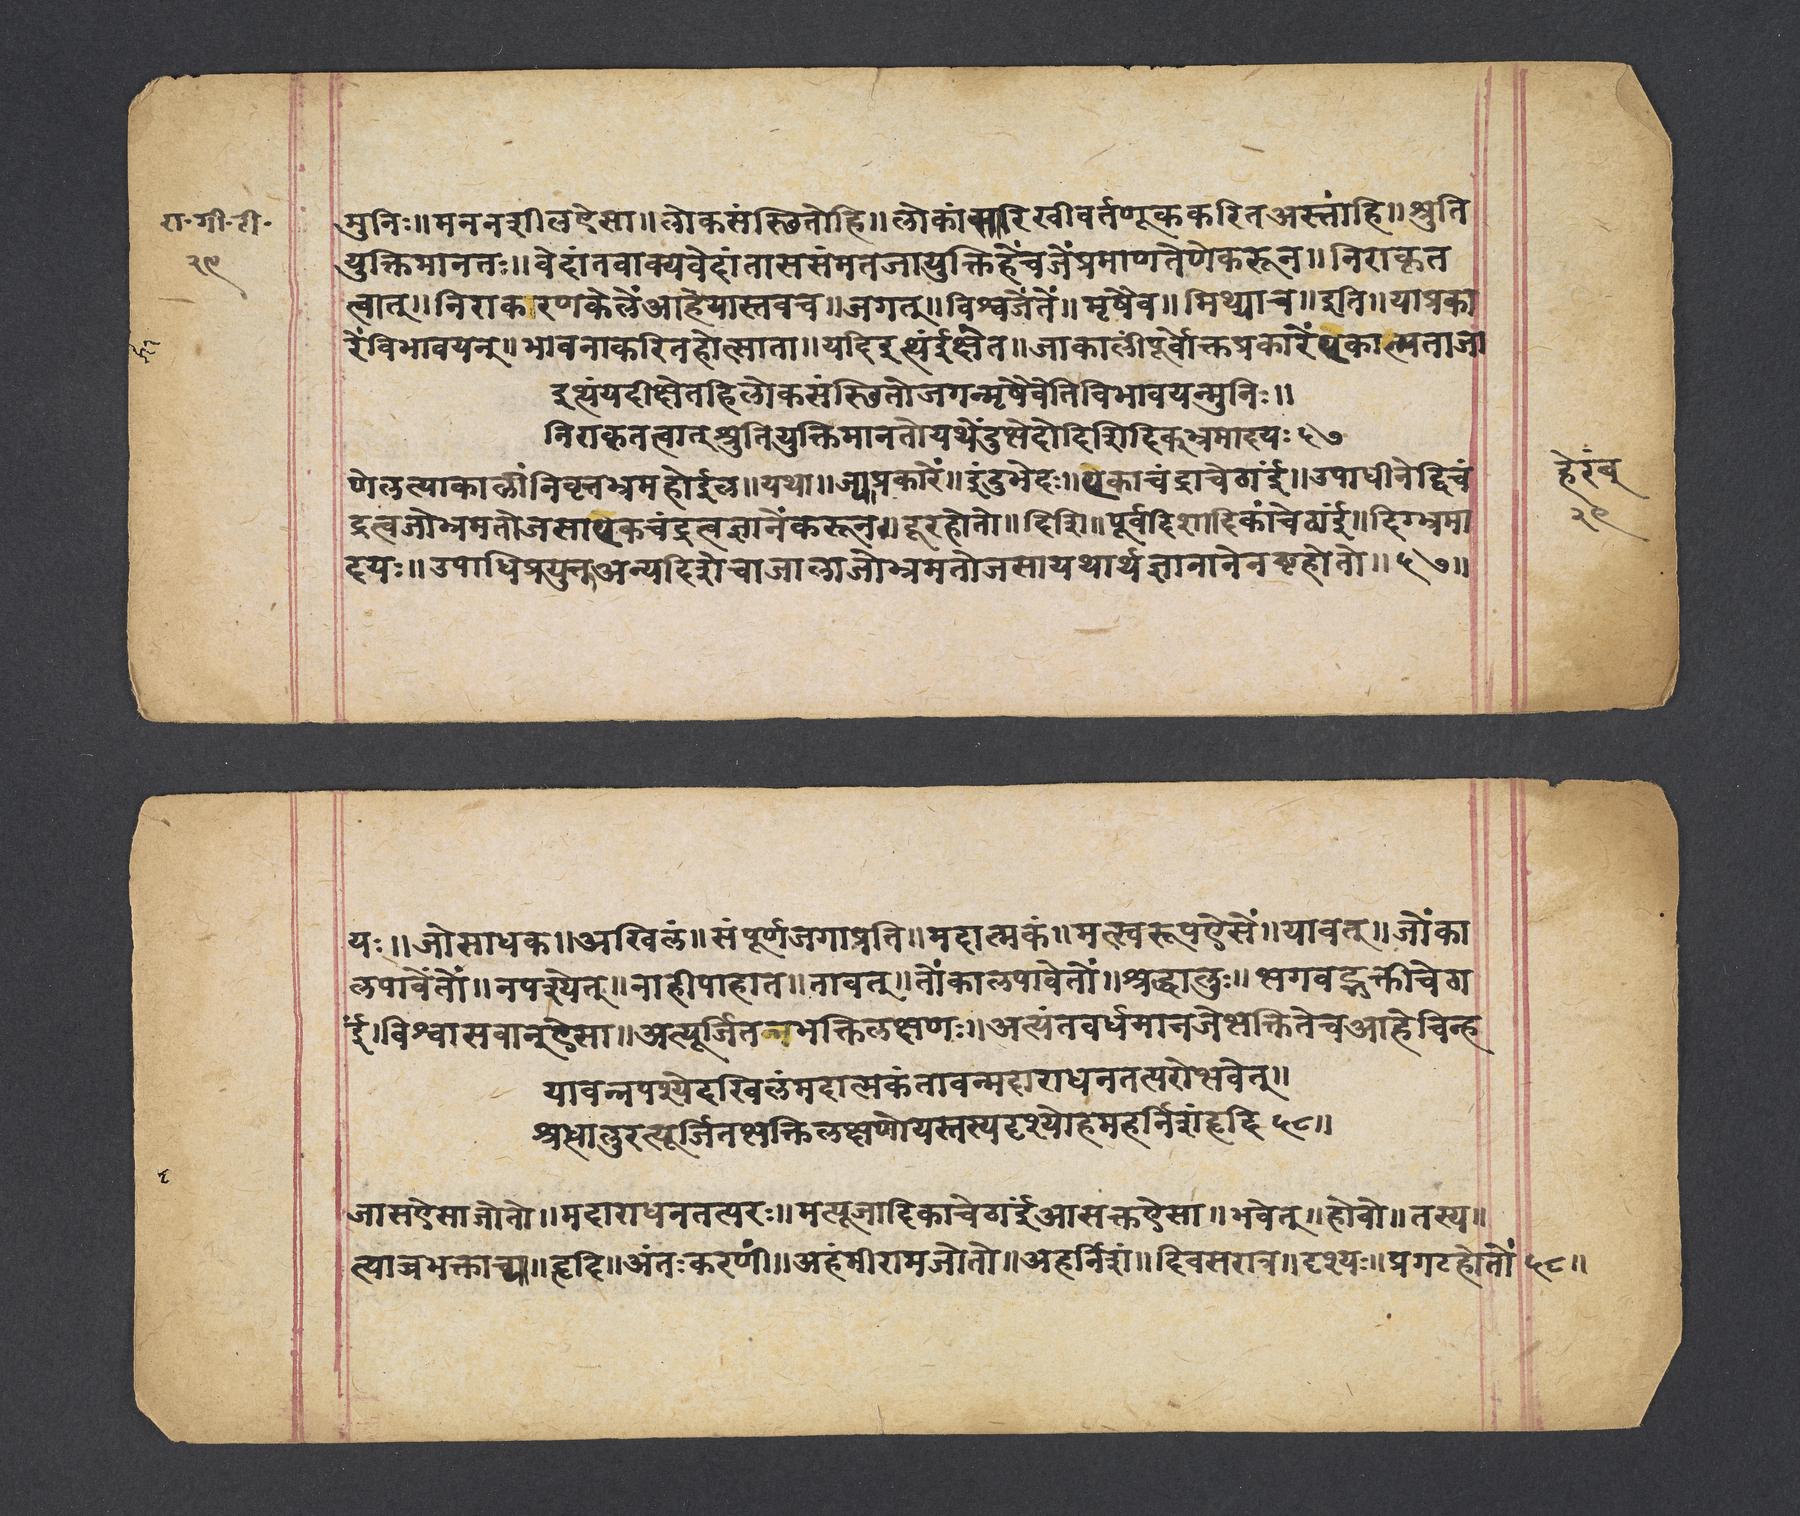 रा॰गी॰टी॰
२९
मुनिः॥मननशीलऐसा॥लोकसंस्थितोहि॥लोकांसारिखीवर्तणूककरितअस्तांहि॥श्रुति
युक्तिमानतः॥वेदांतवाक्यवेदांताससंमतजायुक्तिहेंचजेंप्रमाणतेणेकरून॥निराकृत
त्वात्॥निराकरणकेलेंआहेयास्तवच॥जगत्॥विश्वजेंतें॥मृषैव॥मिथ्याच॥इति॥याप्रका
रेंविभावयन्॥भावनाकरितहोत्साता॥यदिइत्थंईक्षेत॥जाकालींपूर्वोक्तप्रकारेंऐकात्मताजा
इत्थंयदीक्षेतहिलोकसंस्थितोजगन्मृषैवेतिविभावयन्मुनिः॥
निराकृतत्वात्श्रुतियुक्तिमानतोयथेंदुभेदोदिशिदिक्भ्रमादयः५७
णेलत्याकाळींनिवृत्तभ्रमहोईल॥यथा॥ज्याप्रकारें॥इंदुभेदः॥ऐकाचंद्राचेठाईं॥उपाधीनेद्विचं
द्रत्वजोभ्रमतोजसाऐकचंद्रत्वज्ञानेंकरून॥दूरहोतो॥दिशि॥पूर्वदिशादिकांचेठाईं॥दिग्भ्रमा
दयः॥उपाधिप्रयुक्तअन्यदिशेचाजालाजोभ्रमतोजसायथार्थज्ञानानेनष्टहोतो॥५७॥
हेरंब
२९
यः॥जोसाधक॥अखिलं॥संपूर्णजगाप्रति॥मदात्मकं॥मत्स्वरूपऐसें॥यावत्॥जोंका
लपावेंतों॥नपश्येत्॥नाहीपाहात॥तावत्॥तोंकालपावेतों॥श्रद्धालुः॥भगवद्भक्तीचेठा
ईं।विश्वासवान्ऐसा॥अत्यूर्जितभक्तिलक्षणः॥अत्यंतवर्धमानजेभक्तितेचआहेचिन्ह
यावन्नपश्येदखिलंमदात्मकंतावन्मदाराधनतत्परोभवेत्॥
श्रधालुरत्यूर्जितभक्तिलक्षणोयस्तस्यदृश्योहमहर्निशंहृदि५८॥
जासऐसाजोतो॥मदाराधनतत्परः॥मत्पूजादिकाचेठाईंआसक्तऐसा॥भवेत्॥होवो॥तस्य॥
त्याचभक्ताच्या॥हृदि॥अंतःकरणीं॥अहंमीरामजोतो॥अहर्निशं॥दिवसरात्र॥दृश्यः॥प्रगटहोतों५८॥